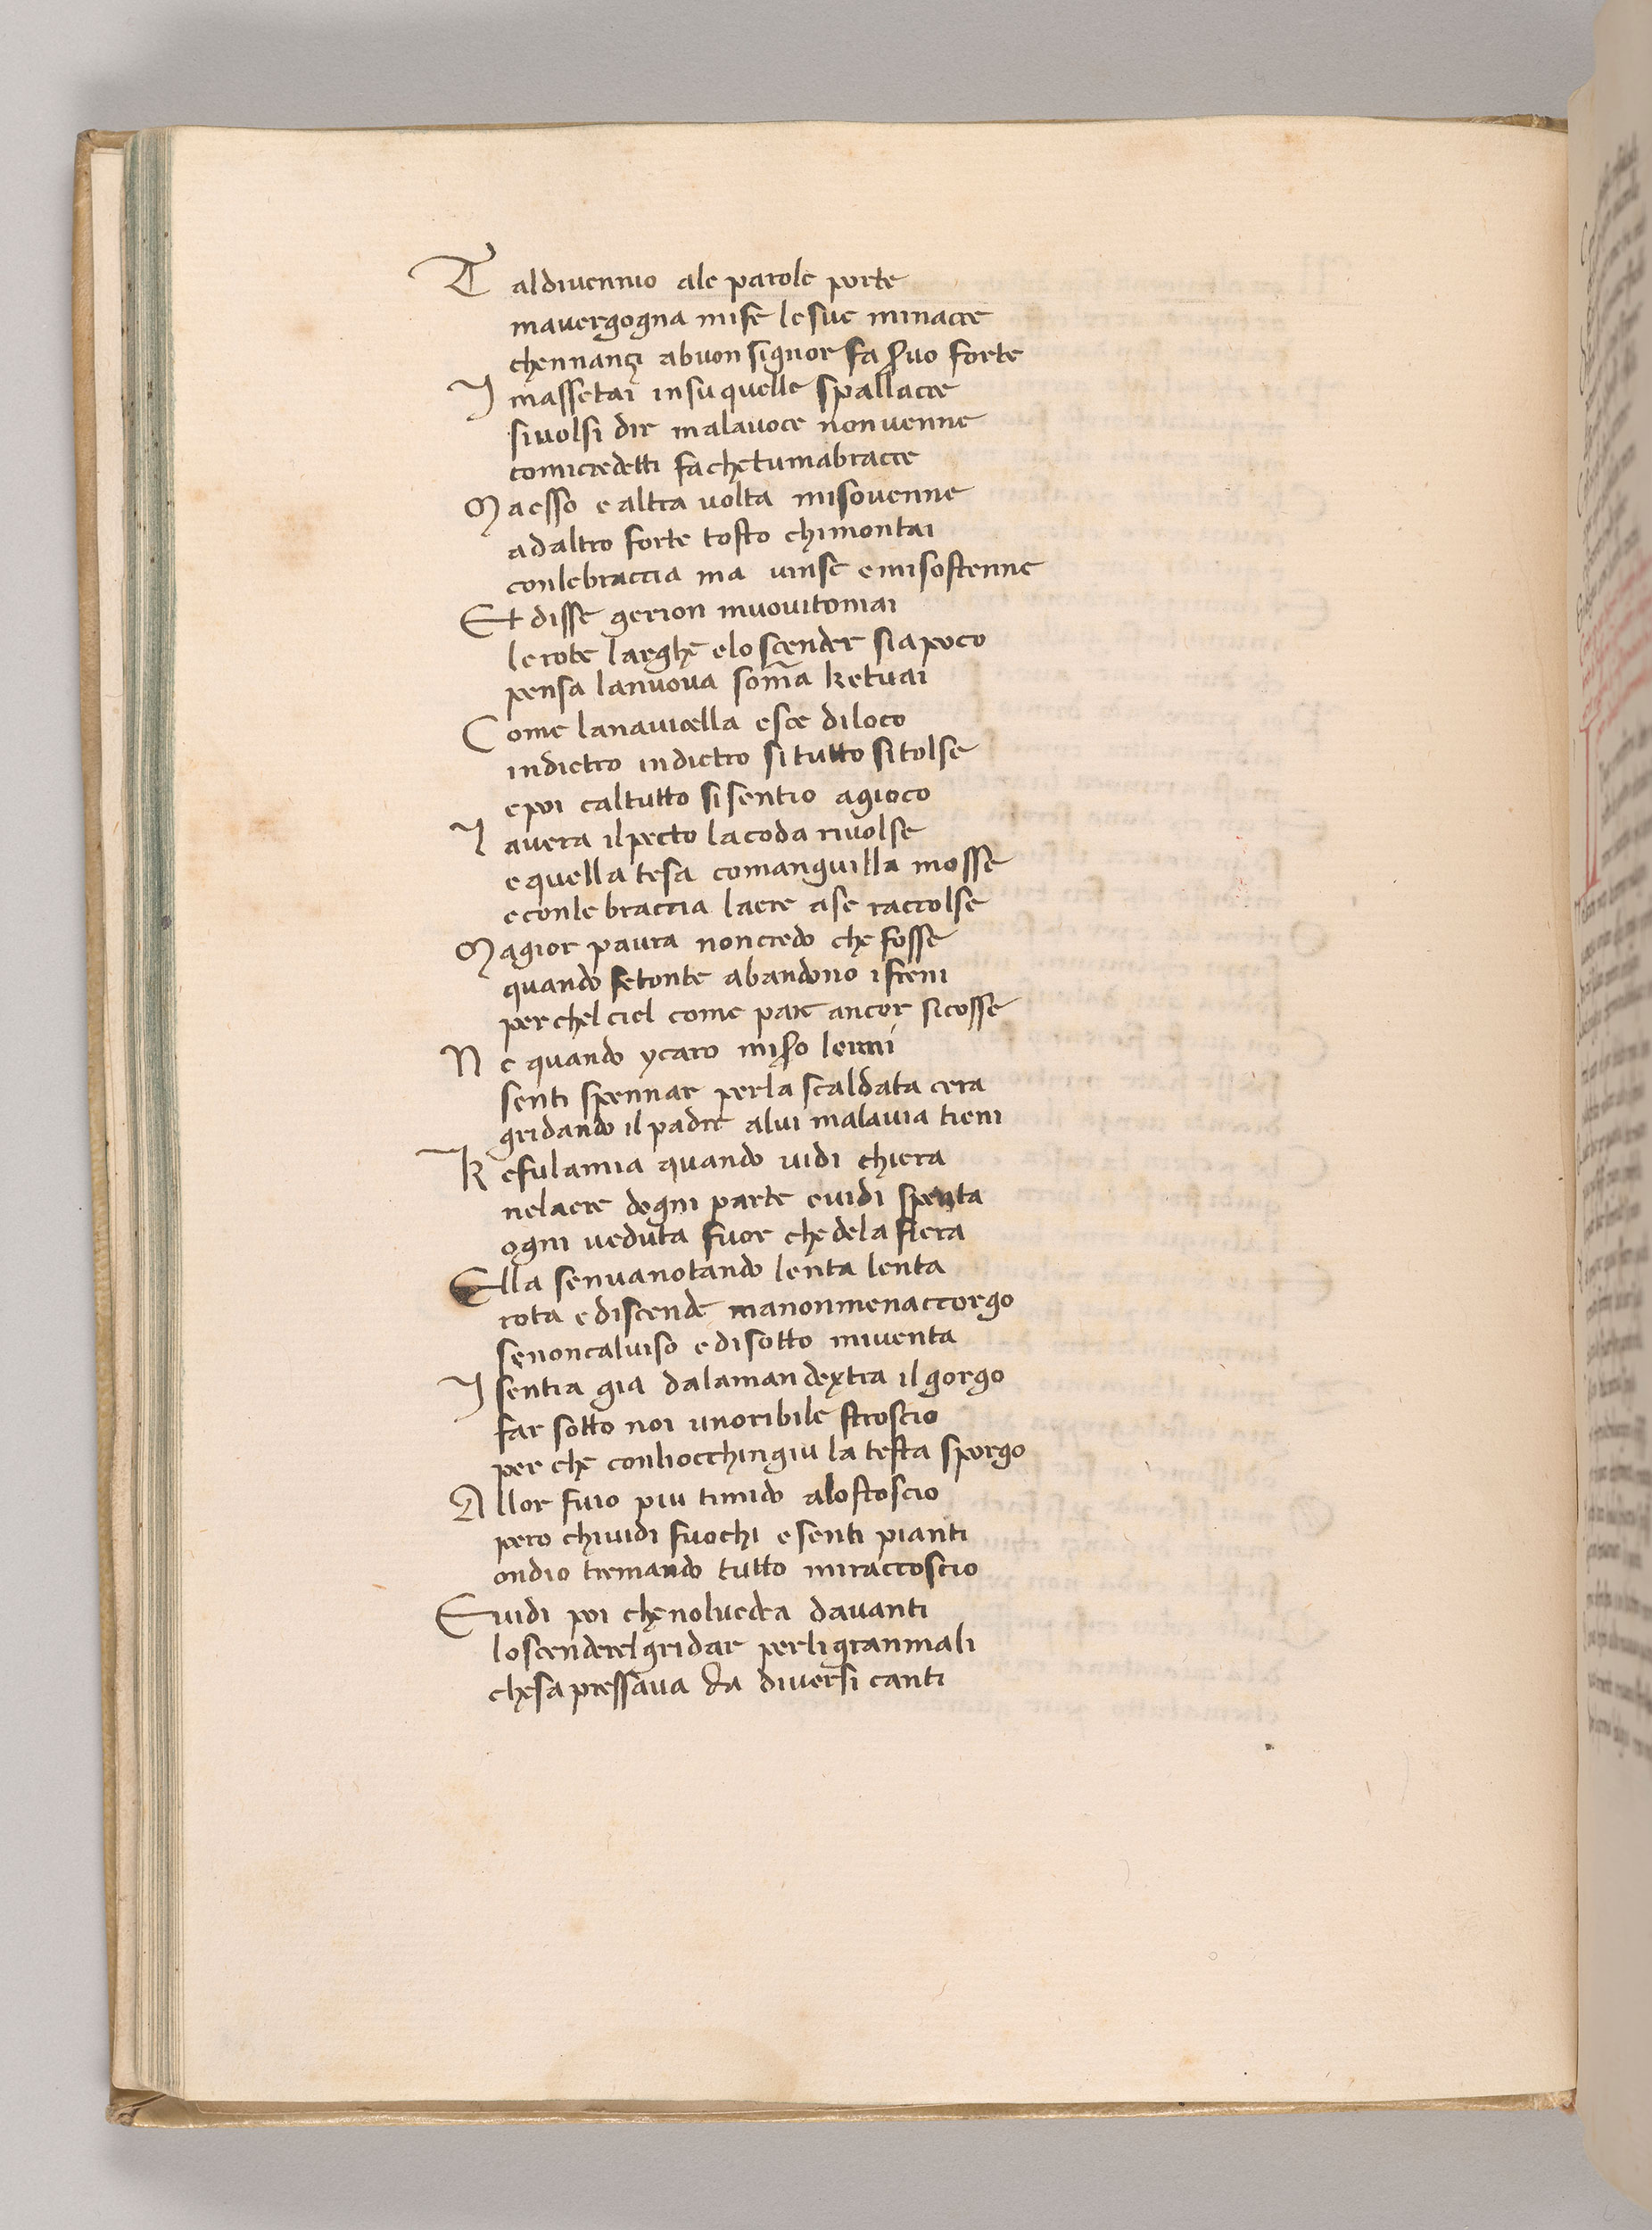 T aldivennio ale parole porte
mavergogna mise lesue minacce
chennançi abuon signor fa servo forte
I massetai insuquelle spallacce
sivolsi dir malavoce nonvenne
comicredetti fachetumabracce
M aesso e altra volta misovenne
adaltro forte tosto chimontai
conlebraccia ma vinse emisostenne
Et disse gerion muovitomai
lerote larghe eloscender siapoco
pensa lanuova soma ketuai
C ome lanavicella esce diloco
indietro indietro situtto sitolse
epoi caltutto sisentio agioco
I avera ilpecto lacoda rivolse
equella tesa comanguilla mosse
econle braccia laere ase raccolse
M agior paura noncredo che fosse
quando fetonte abandono ifreni
perchelciel come pare ancor sicosse
N e quando ycaro misero lerini
senti spennar perla scaldata cera
gridando ilpadre alui malavia tieni
K efulamia quando vidi chiera
nelaere dogni parte evidi spenta
ogni veduta fuor chedela fiera
Ella senvanotando lenta lenta
rota ediscende manonmenaccorgo
senoncalviso edisotto miventa
I sentia gia dalamandextra ilgorgo
far sotto noi unoribile stroscio
per che conliocchingiu la testa sporgo
A llor fuio piu timido alostoscio
pero chividi fuochi esenti pianti
ondio tremando tutto miraccoscio
Evidi poi chenolvedea davanti
loscenderelgridar perligranmali
chesapressava da diversi canti